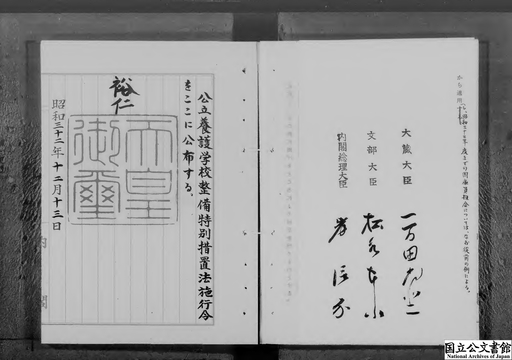 公立養護学校整備特別措置法施行令
をここに公布する。
裕仁
天皇
御璽
昭和三十二年十二月十三日
大蔵大臣
一万田尚登
文部大臣
松永東
内閣総理大臣
岸信介
国立公文書館
National Archives of Japan